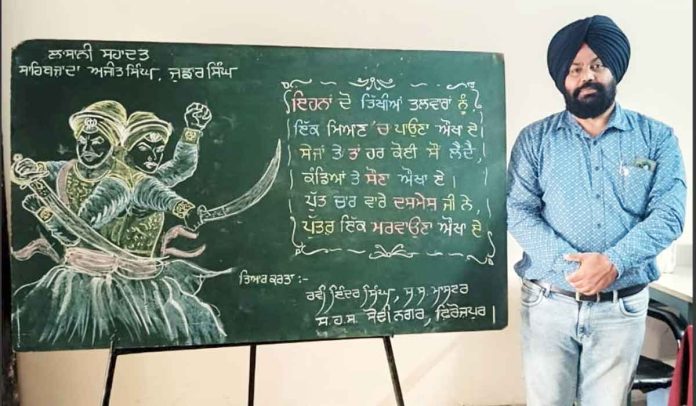 ਲਾਸਾਨੀ ਸ਼ਹਾਦਤ
ਸਾਹਿਬਜ਼ਾਦਾ ਅਜੀਤ ਸਿੰਘ, ਜੁਝਾਰ ਸਿੰਘ
ਇਹਨਾਂ ਦੋ ਤਿੱਖੀਆਂ ਤਲਵਾਰਾਂ ਨੂੰ,
ਇੱਕ ਮਿਆਣ 'ਚ ਪਾਉਣਾ ਔਖਾ ਏ।
ਸੇਜਾਂ ਤੇ ਤਾਂ ਹਰ ਕੋਈ ਸੌਂ ਲੈਂਦੈ,
ਕੰਡਿਆਂ ਤੇ ਸੌਣਾ ਔਖਾ ਏ।
ਪੁੱਤ ਚਾਰ ਵਾਰੇ ਦਸਮੇਸ਼ ਜੀ ਨੇ,
ਪੁੱਤਰ ਇੱਕ ਮਰਵਾਉਣਾ ਔਖਾ ਏ
ਤਿਆਰ ਕਰਤਾ :-
ਰਵੀ ਇੰਦਰ ਸਿੰਘ, ਸ.ਸ. ਮਾਸਟਰ
ਸ.ਹ.ਸ. ਸੋਢੀ ਨਗਰ, ਫਿਰੋਜ਼ਪੁਰ।